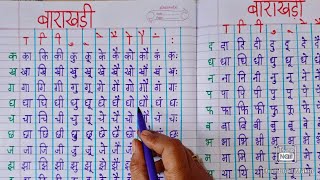 बाराखड़ी
ा ि ी ु ू े ै ो ौ ं ः
क का कि की कु कू के कै को कौ कं कः
ख खा खि खी खु खू खे खै खो खौ खं खः
ग गा गि गी गु गू गे गै गो गौ गं गः
घ घा घि घी घु घू घे घै घो घौ घं घः
च चा चि ची चु चू चे चै चो चौ चं चः
छ छा छि छी छु छू छे छै छो छौ छं छः
ज जा जि जी जु जू जे जै
झ झा झि झी झु झू झे झै
बाराखड़ी
ा ि ी ु ू े
द दा दि दी दु दू दे
ध धा धि धी धु धू धे
न ना नि नी नु नू ने
प पा पि पी पु पू पे
फ फा फि फी फु फू
ब बा बि बी बु बू
भ भा भि भी भु भू
म मा मि मी मु मू